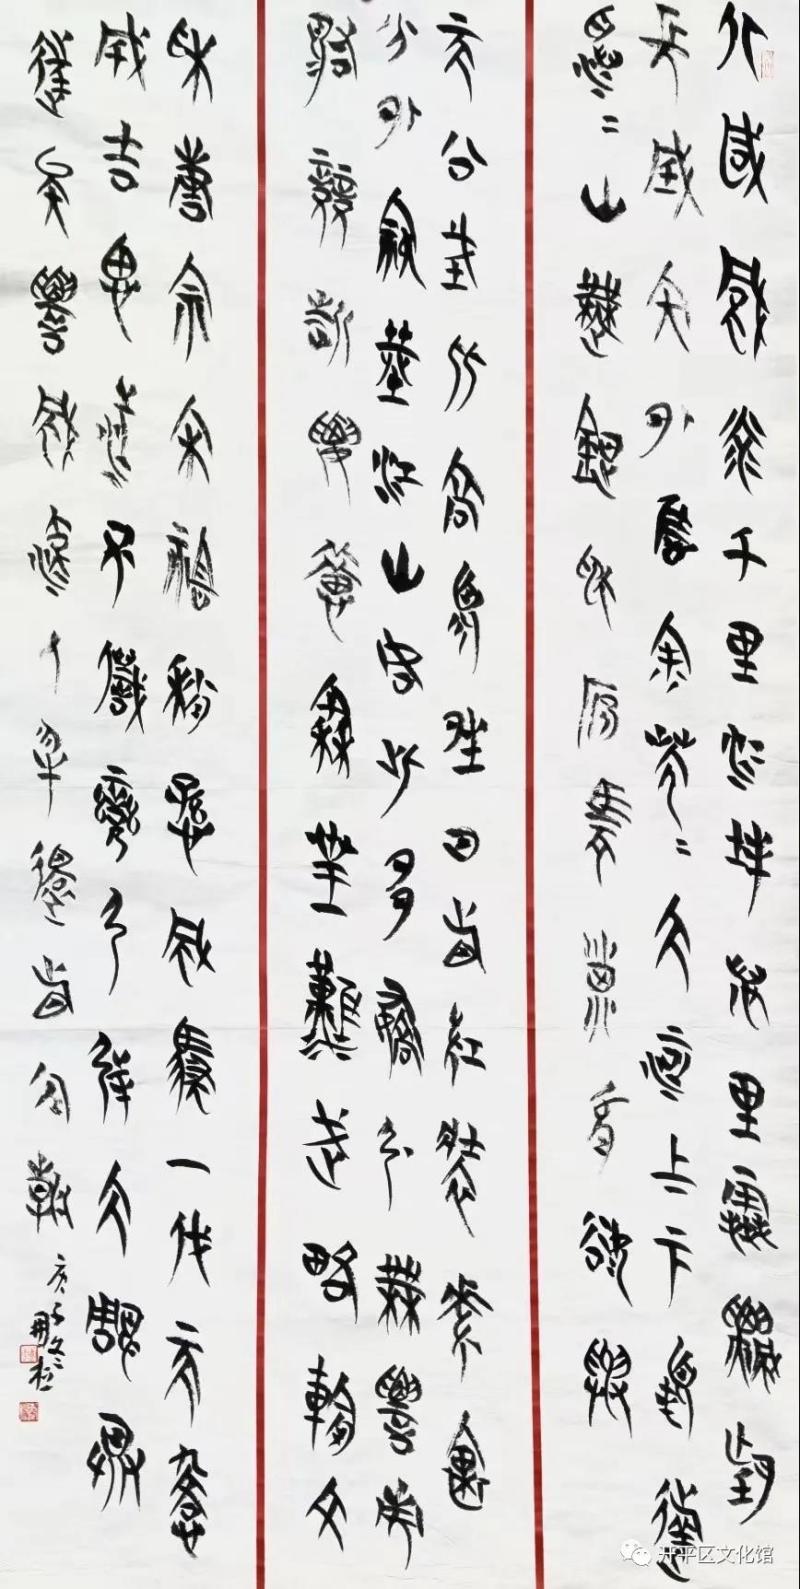 北國風光千里冰封萬里雪飄望
長城內外惟余莽〻大河上下頓失
滔〻山舞銀蛇原馳蠟象欲與
天公試比高須晴日看紅裝素裹
分外妖嬈江山如此多嬌引無數英
雄競折腰惜秦皇漢武略輸文
采唐宗宋祖稍遜風騷一代天驕
成吉思汗只識彎弓射大雕俱
往矣數風流人物還看今朝
开平区文化馆